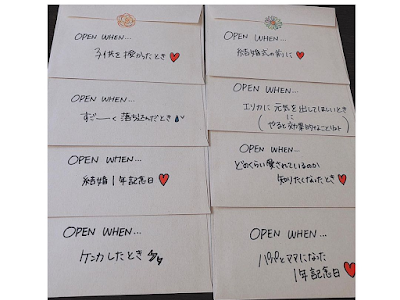 OPEN WHEN...
子供を授かったとき
OPEN WHEN...
すご〜く落ち込んだとき
OPEN WHEN...
結婚1年記念日
OPEN WHEN...
ケンカしたとき
OPEN WHEN...
結婚式の前に
OPEN WHEN...
エリカに元気を出してほしいとき
に
(やると効果的なことリスト)
OPEN WHEN...
どのくらい愛されているのか
知りたくなったとき
OPEN WHEN...
パパとママになった
1年記念日